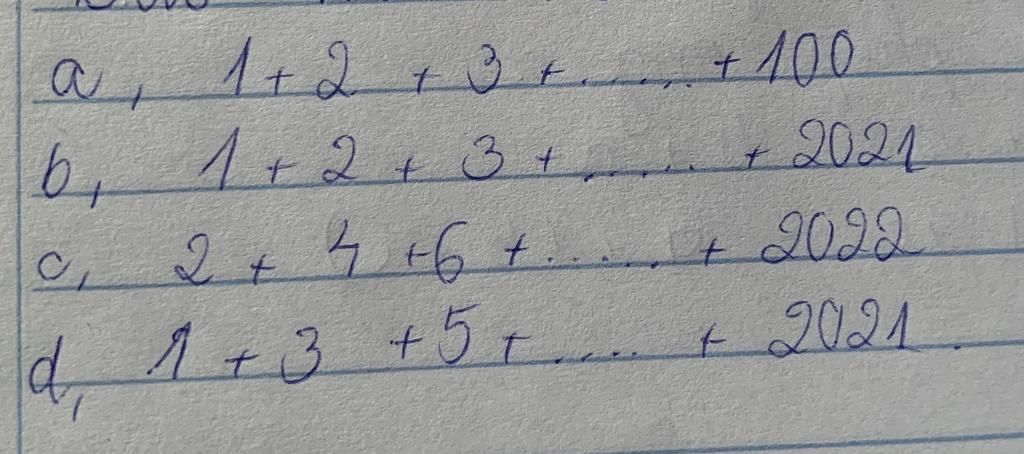 a, 1 + 2 + 3 + ...... + 100
b, 1 + 2 + 3 + ...... + 2021
c, 2 + 4 + 6 + ...... + 2022
d, 1 + 3 + 5 + ..... + 2021.